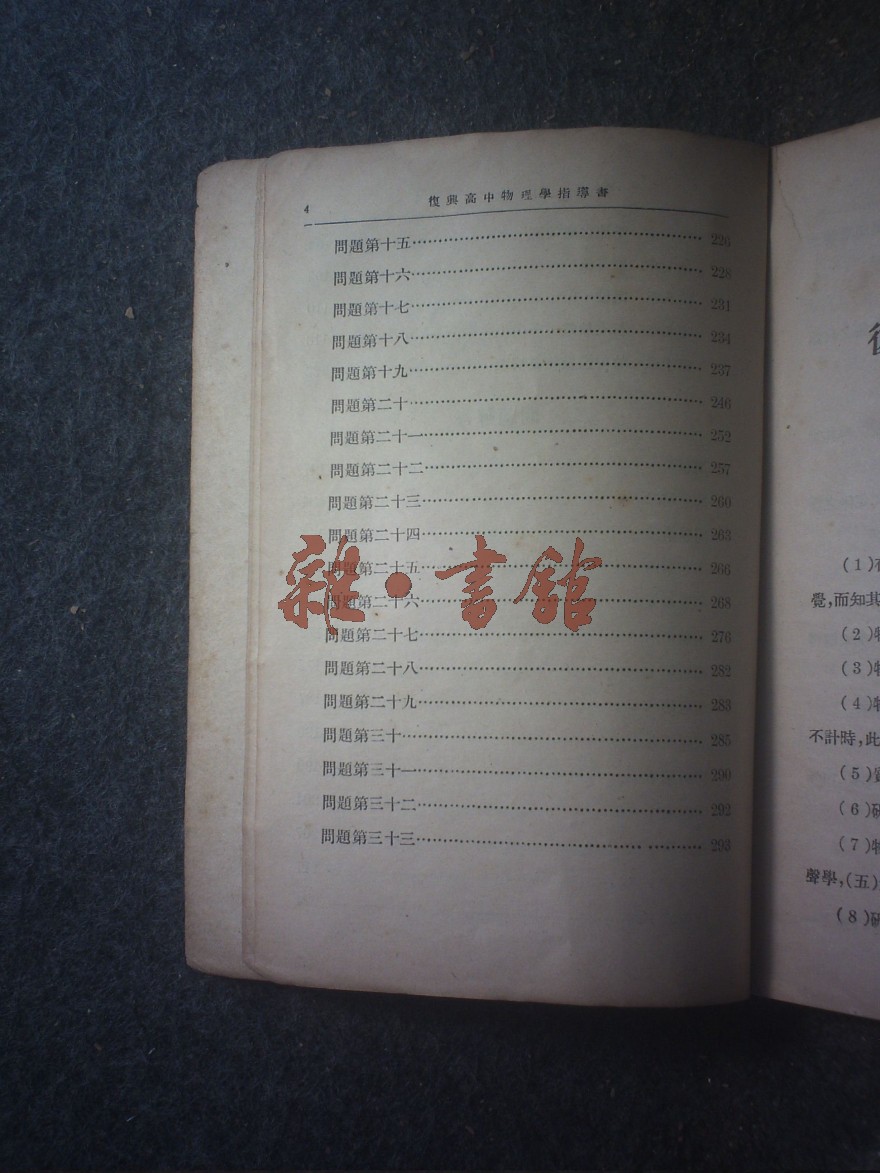 4 復興高中物理學指導書
問題第十五 226
問題第十六 228
問題第十七 231
問題第十八 234
問題第十九 237
問題第二十 246
問題第二十一 252
問題第二十二 257
問題第二十三 260
問題第二十四 263
問題第二十五 266
問題第二十六 268
問題第二十七 276
問題第二十八 282
問題第二十九 283
問題第三十 285
問題第三十一 290
問題第三十二 292
問題第三十三 293
雜·書館
(1)
覺,而知其
(2)物
(3)物
(4)物
不計時,此
(5)
(6)研
(7)物
聲學,(五)
(8)研